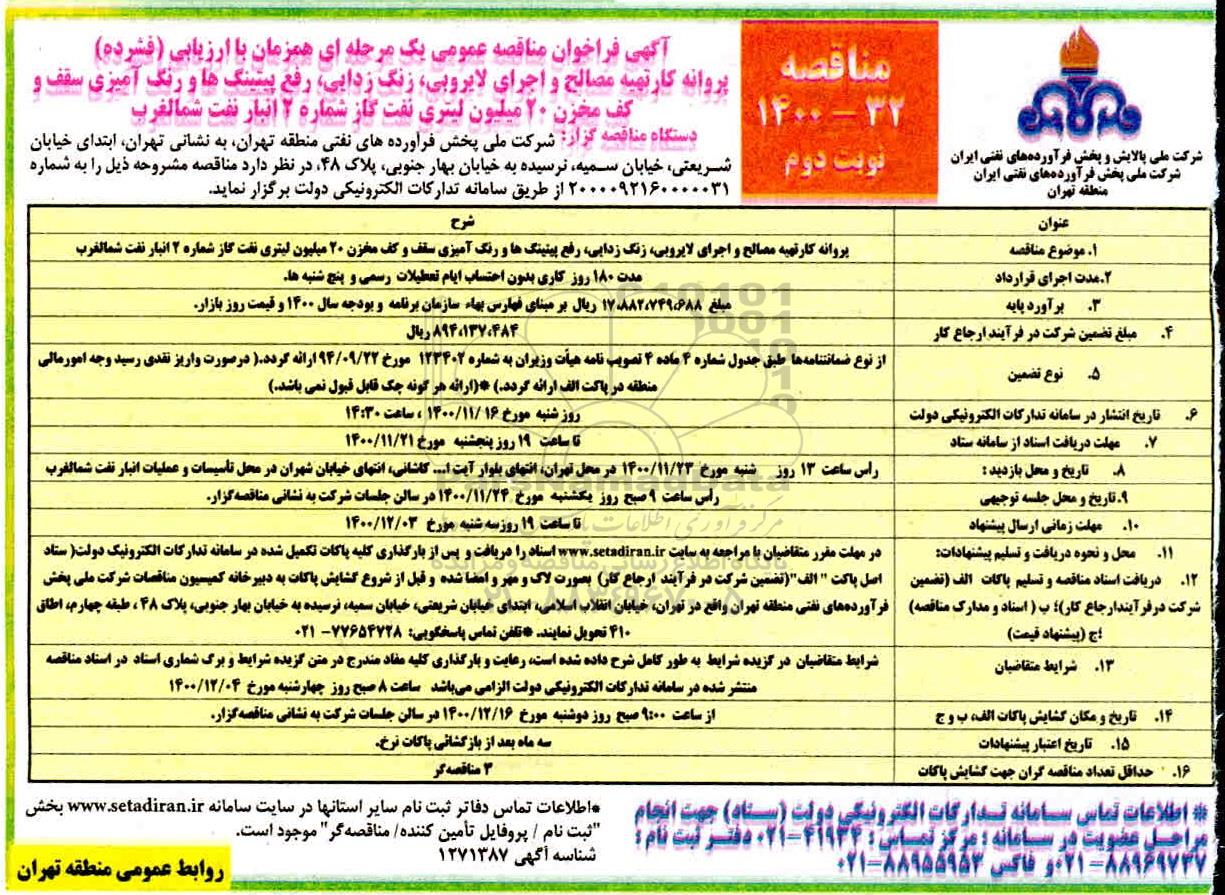 آگهی فراخوان مناقصه عمومی یک مرحله ای همزمان با ارزیابی (فشرده)
پروانه کارتهیه مصالح و اجرای لایروبی، زنگ زدایی، رفع پیتینگ ها و رنگ آمیزی سقف و
کف مخزن ۲۰ میلیون لیتری نفت گاز شماره ۲ انبار نفت شمالغرب
مناقصه
۳۲ - ۱۴۰۰
نوبت دوم
شرکت ملی پالایش و پخش فرآورده‌های نفتی ایران
شرکت ملی پخش فرآورده‌های نفتی ایران
منطقه تهران
دستگاه مناقصه گزار: شرکت ملی پخش فرآورده های نفتی منطقه تهران، به نشانی تهران، ابتدای خیابان
شریعتی، خیابان سمیه، نرسیده به خیابان بهار جنوبی، پلاک ۴۸، در نظر دارد مناقصه مشروحه ذیل را به شماره
۲۰۰۰۰۹۲۱۶۰۰۰۰۰۳۱ از طریق سامانه تدارکات الکترونیکی دولت برگزار نماید.
عنوان شرح
۱. موضوع مناقصه پروانه کارتهیه مصالح و اجرای لایروبی، زنگ زدایی، رفع پیتینگ ها و رنگ آمیزی سقف و کف مخزن ۲۰ میلیون لیتری نفت گاز شماره ۲ انبار نفت شمالغرب
۲.مدت اجرای قرارداد مدت ۱۸۰ روز کاری بدون احتساب ایام تعطیلات رسمی و پنج شنبه ها.
۳. برآورد پایه مبلغ ۱۷،۸۸۲،۷۴۹،۶۸۸ ریال بر مبنای فهارس بهاء سازمان برنامه و بودجه سال ۱۴۰۰ و قیمت روز بازار.
۴. مبلغ تضمین شرکت در فرآیند ارجاع کار ۸۹۴،۱۳۷،۴۸۴ ریال
۵. نوع تضمین از نوع ضمانتنامه‌ها طبق جدول شماره ۴ ماده ۴ تصویب نامه هیأت وزیران به شماره ۱۲۳۴۰۲ مورخ ۹۴/۰۹/۲۲ ارائه گردد.( درصورت واریز نقدی رسید وجه امورمالی
منطقه در پاکت الف ارائه گردد.) *(ارائه هر گونه چک قابل قبول نمی باشد.)
۶. تاریخ انتشار در سامانه تدارکات الکترونیکی دولت روز شنبه مورخ ۱۶ /۱۴۰۰/۱۱ ، ساعت ۱۴:۳۰
۷. مهلت دریافت اسناد از سامانه ستاد تا ساعت ۱۹ روز پنجشنبه مورخ ۱۴۰۰/۱۱/۲۱
۸. تاریخ و محل بازدید : رأس ساعت ۱۳ روز شنبه مورخ ۱۴۰۰/۱۱/۲۳ در محل تهران، انتهای بلوار آیت ا... کاشانی، انتهای خیابان شهران در محل تأسیسات و عملیات انبار نفت شمالغرب
۹.تاریخ و محل جلسه توجیهی رأس ساعت ۹ صبح روز یکشنبه مورخ ۱۴۰۰/۱۱/۲۴ در سالن جلسات شرکت به نشانی مناقصه‌گزار.
۱۰. مهلت زمانی ارسال پیشنهاد تا ساعت ۱۹ روزسه شنبه مورخ ۱۴۰۰/۱۲/۰۳
۱۱. محل و نحوه دریافت و تسلیم پیشنهادات: در مهلت مقرر متقاضیان با مراجعه به سایت www.setadiran.ir اسناد را دریافت و پس از بارگذاری کلیه پاکات تکمیل شده در سامانه تدارکات الکترونیک دولت( ستاد
۱۲. دریافت اسناد مناقصه و تسلیم پاکات الف (تضمین اصل پاکت " الف"(تضمین شرکت در فرآیند ارجاع کار) بصورت لاک و مهر و امضا شده و قبل از شروع گشایش پاکات به دبیرخانه کمیسیون مناقصات شرکت ملی پخش
شرکت درفرآیندارجاع کار)؛ ب ( اسناد و مدارک مناقصه) فرآورده‌های نفتی منطقه تهران واقع در تهران، خیابان انقلاب اسلامی، ابتدای خیابان شریعتی، خیابان سمیه، نرسیده به خیابان بهار جنوبی، پلاک ۴۸ ، طبقه چهارم، اطاق
؛ج (پیشنهاد قیمت) ۴۱۰ تحویل نمایند. *تلفن تماس پاسخگویی: ۷۷۶۵۴۷۲۸- ۰۲۱
۱۳. شرایط متقاضیان شرایط متقاضیان در گزیده شرایط به طور کامل شرح داده شده است، رعایت و بارگذاری کلیه مفاد مندرج در متن گزیده شرایط و برگ شماری اسناد در اسناد مناقصه
منتشر شده در سامانه تدارکات الکترونیکی دولت الزامی می‌باشد ساعت ۸ صبح روز چهارشنبه مورخ ۱۴۰۰/۱۲/۰۴
۱۴. تاریخ و مکان گشایش پاکات الف، ب و ج از ساعت ۹:۰۰ صبح روز دوشنبه مورخ ۱۴۰۰/۱۲/۱۶ در سالن جلسات شرکت به نشانی مناقصه‌گزار.
۱۵. تاریخ اعتبار پیشنهادات سه ماه بعد از بازگشائی پاکات نرخ.
۱۶. حداقل تعداد مناقصه گران جهت گشایش پاکات ۳ مناقصه‌گر
* اطلاعات تماس سامانه تدارکات الکترونیکی دولت (ستاد) جهت انجام
مراحل عضویت در سامانه : مرکز تماس : ۴۱۹۳۴-۰۲۱ دفتر ثبت نام :
۸۸۹۶۹۷۳۷-۰۲۱ و فاکس ۸۸۹۵۵۹۵۳-۰۲۱
*اطلاعات تماس دفاتر ثبت نام سایر استانها در سایت سامانه www.setadiran.ir بخش
"ثبت نام / پروفایل تأمین کننده/ مناقصه‌گر" موجود است.
شناسه آگهی ۱۲۷۱۳۸۷
روابط عمومی منطقه تهران
ParsNamadData
پایگاه اطلاع رسانی مناقصه و مزایده